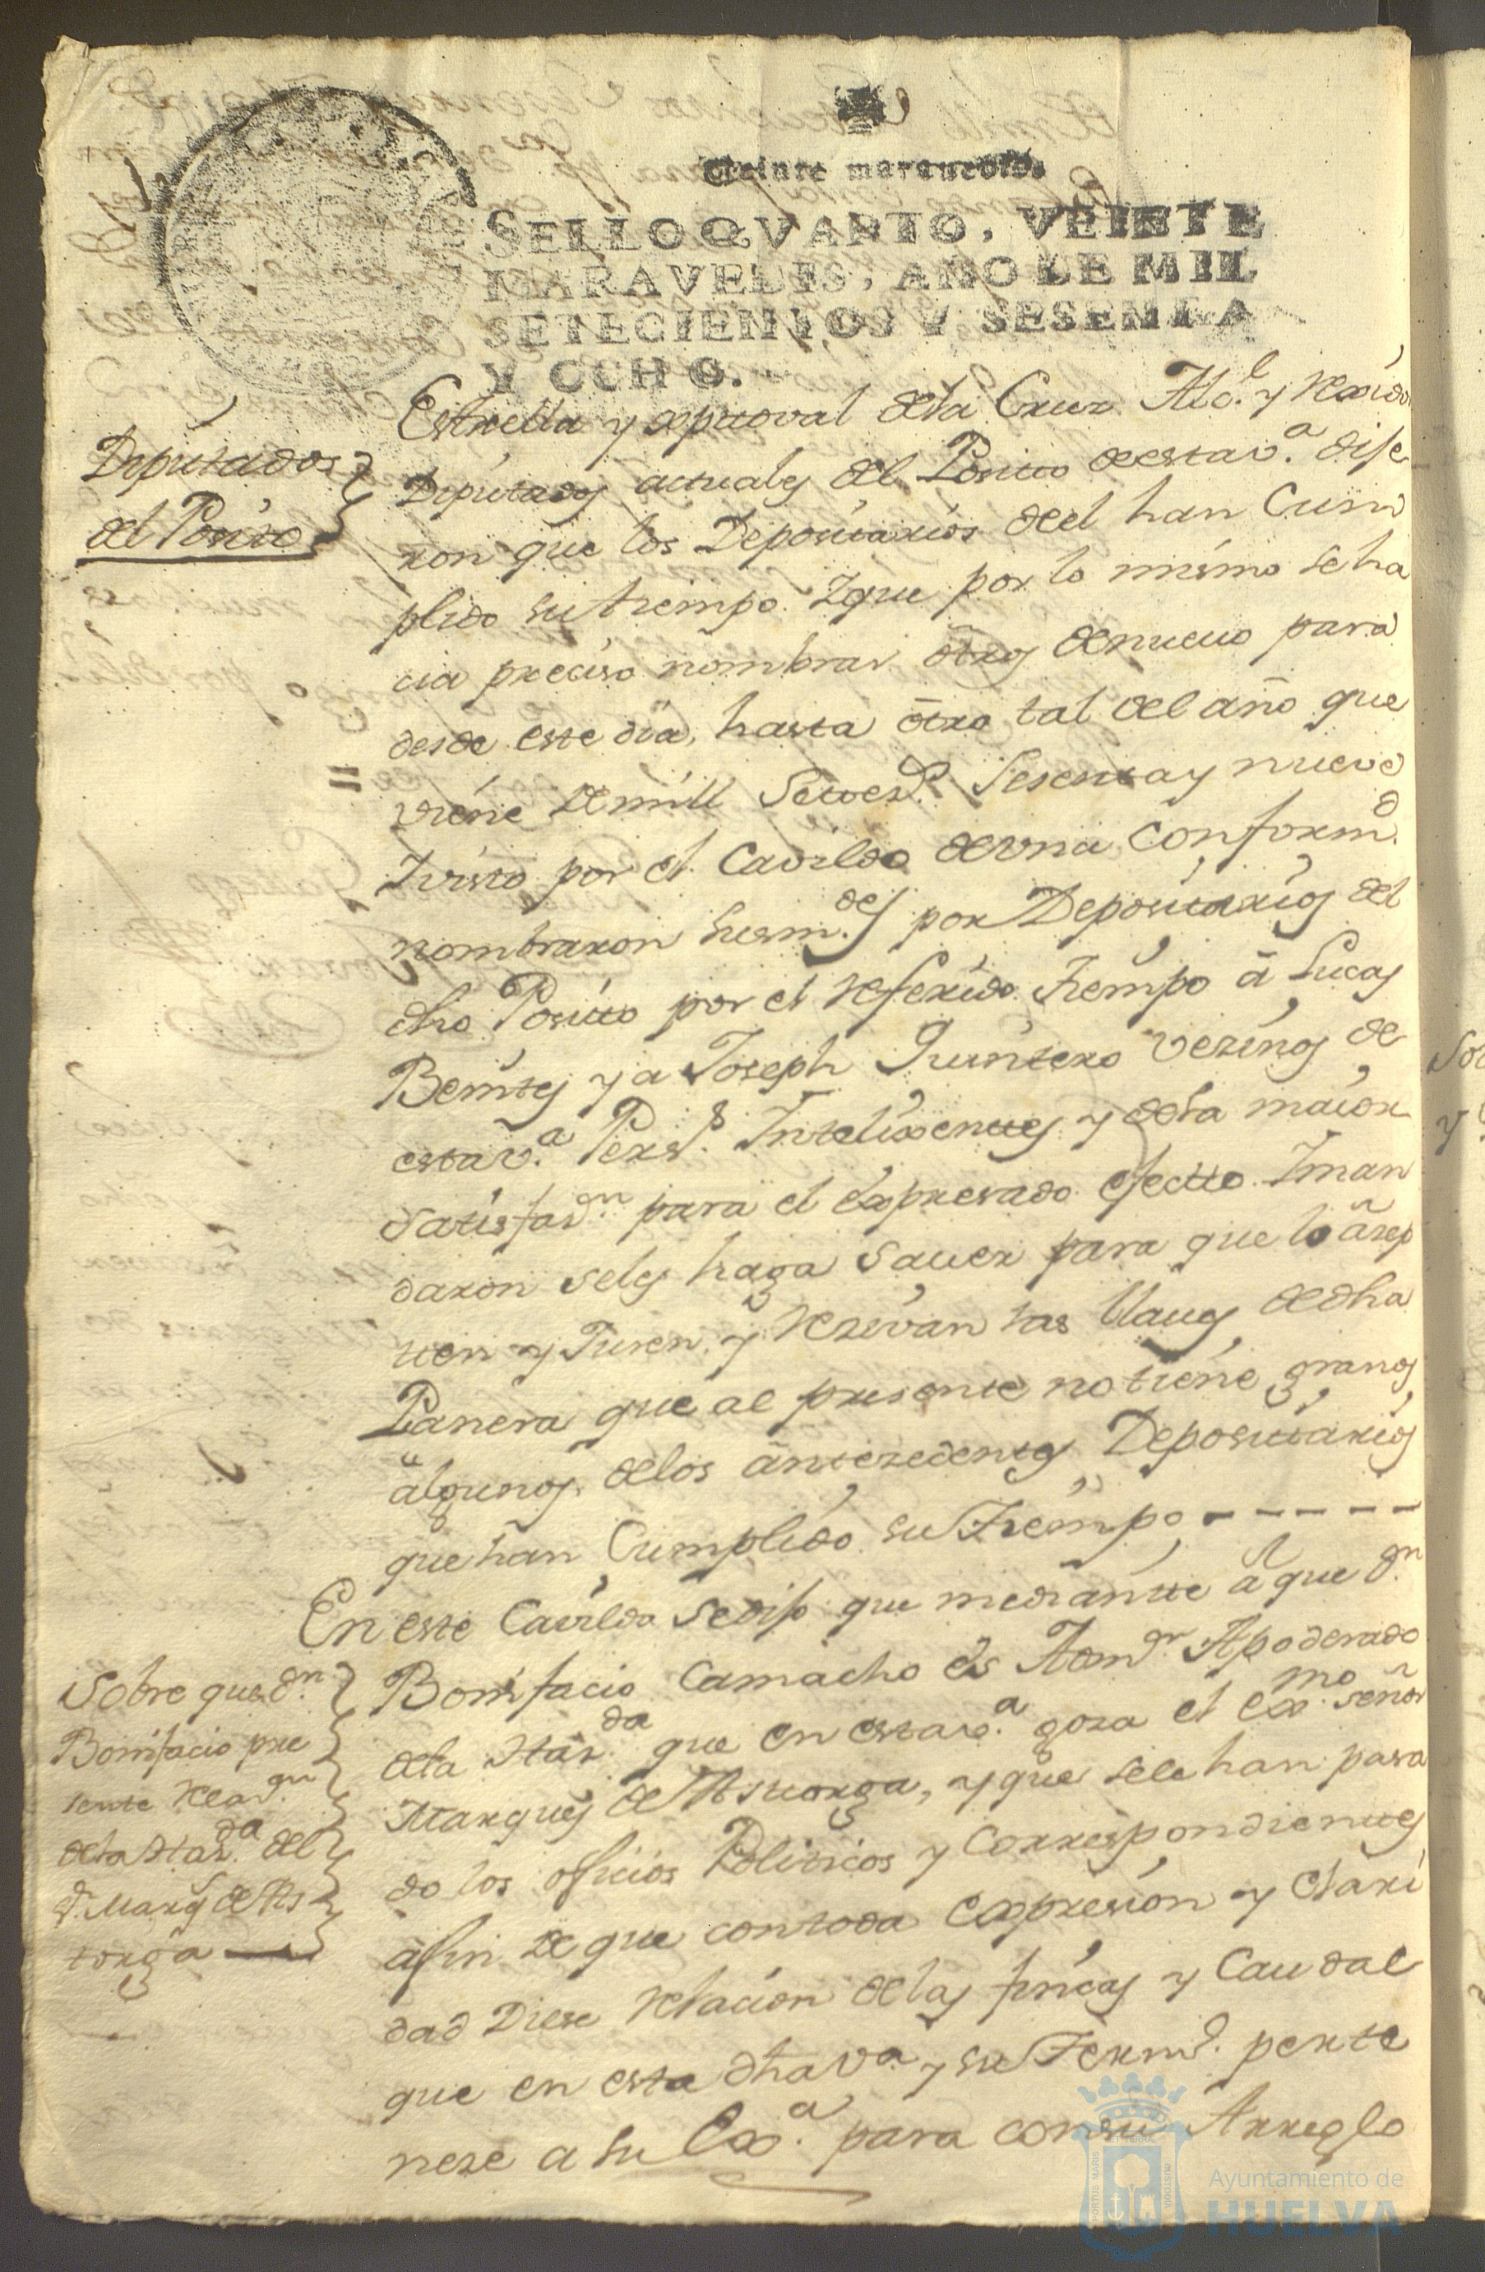 Veinte maravedis.
SELLO QVARTO, VEINTE
MARAVEDIS, AÑO DE MIL
SETECIENTOS Y SESENTA
Y OCHO.
Estrella y xptoval dela Cruz Alc.e y Rexido
Deputados
del Posito
Diputados actuales del Posito deesta v.a dije
ron que los Depositarios deel han Cum
plido su tiempo. Yque por lo mismo seha
cia preciso nombrar otros denuevo para
desde este dia, hasta otro tal del año que
viene demill Setecs. Sesenta y nueve
Yvisto por el Cavildo deuna conformd.
nombraron susm.des por Depositarios del
dho Posito por el Referido tiempo â Lucas
Benites y a Joseph Quintero vezinos de
esta v.a Pers.s Intelixentes y dela maior
satisfac.on para el expresado efectto Yman
daron seles haga saver para que lo âzep
ten y Juren, y Rezivan las llaves de dha
Panera que al presente no tiene granos
âlgunos, delos ântezedentes Depositarios
que han Cumplido su tiempo - - - - -
En este Cavildo sedijo que mediantte â que d.n
Sobre que d.n
Bonifacio pre
sente Relaz.on
dela Haz.da del
S. Marqs de As
torga
Bonifacio Camacho es Adm.or Apoderado
dela Haz.da que en esta v.a goza el exmo. señor
Marques de Astorga, y que sele han pasa
do los oficios Politicos y Correspondienttes
afin de que contoda expresion y clari
dad Diese Relacion delas fincas y Caudal
que en esta dha v.a y su Termo. perte
neze a su Ex.a para consu Arreglo
Ayuntamiento de
HUELVA